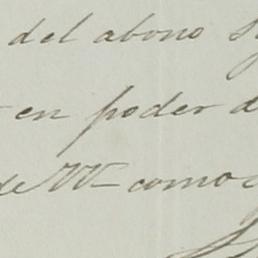 del abono
en poder d
de VM como